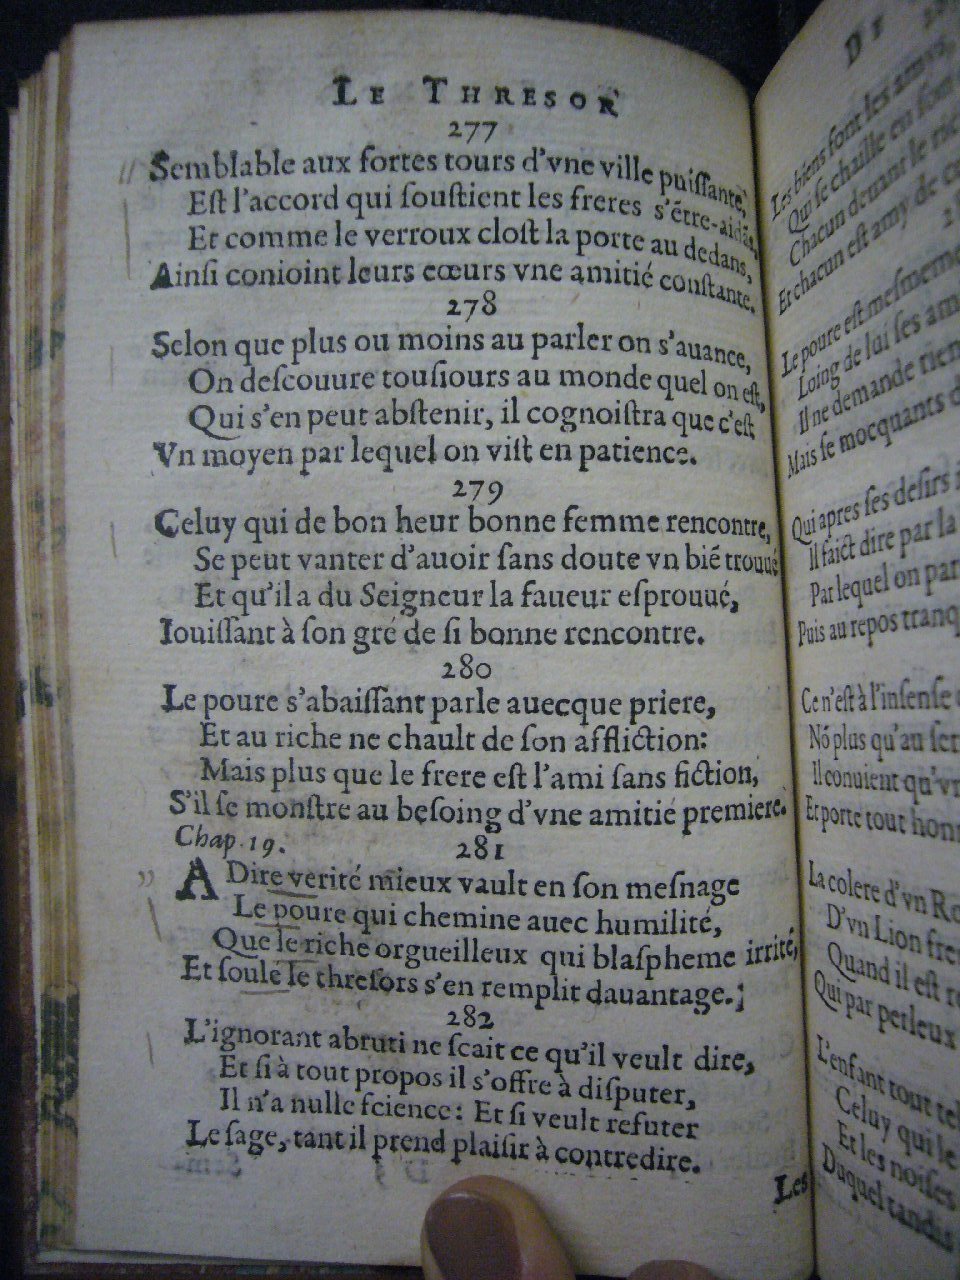 LE THRESOR
277
Semblable aux fortes tours d'vne ville puiſſante,
Eſt l'accord qui ſouſtient les freres s'ẽtre-aidãs,
Et comme le verroux cloſt la porte au dedans,
Ainſi conioint leurs cœurs vne amitié conſtante.
278
Selon que plus ou moins au parler on s'auance,
On deſcouure touſiours au monde quel on eſt,
Qui s'en peut abſtenir, il cognoiſtra que c'eſt
Vn moyen par lequel on viſt en patience.
279
Celuy qui de bon heur bonne femme rencontre,
Se peut vanter d'auoir ſans doute vn biẽ trouué
Et qu'il a du Seigneur la faueur eſprouué,
Iouiſſant à ſon gré de ſi bonne rencontre.
280
Le poure s'abaiſſant parle auecque priere,
Et au riche ne chault de ſon affliction:
Mais plus que le frere eſt l'ami ſans fiction,
S'il ſe monſtre au beſoing d'vne amitié premiere.
Chap. 19.
281
A Dire verité mieux vault en ſon meſnage
Le poure qui chemine auec humilité,
Que le riche orgueilleux qui blaſpheme irrité,
Et ſoulé de threſors s'en remplit dauantage.
282
L'ignorant abruti ne ſcait ce qu'il veult dire,
Et ſi à tout propos il s'offre à diſputer,
Il n'a nulle ſcience: Et ſi veult refuter
Le ſage, tant il prend plaiſir à contredire.
Les
DI
Les biens font les amys,
Qui ſe chaille en ſon
Chacun deuant le
Et chacun eſt amy de
Le poure eſt meſmeme
Loing de lui ſes am
Il ne demande rien
Mais ſe mocquants d
Qui apres ſes deſirs
Il faict dire par la
Par lequel on par
Puis au repos tranq
Ce n'eſt à l'inſenſe
Nõ plus qu'au ſer
Il conuient qu'vn
Et porte tout hon
La colere d'vn Ro
D'vn Lion fre
Quand il eſt r
Qui par perleux
L'enfant tout tel
Celuy qui le
Et les noiſes
Duquel tandis